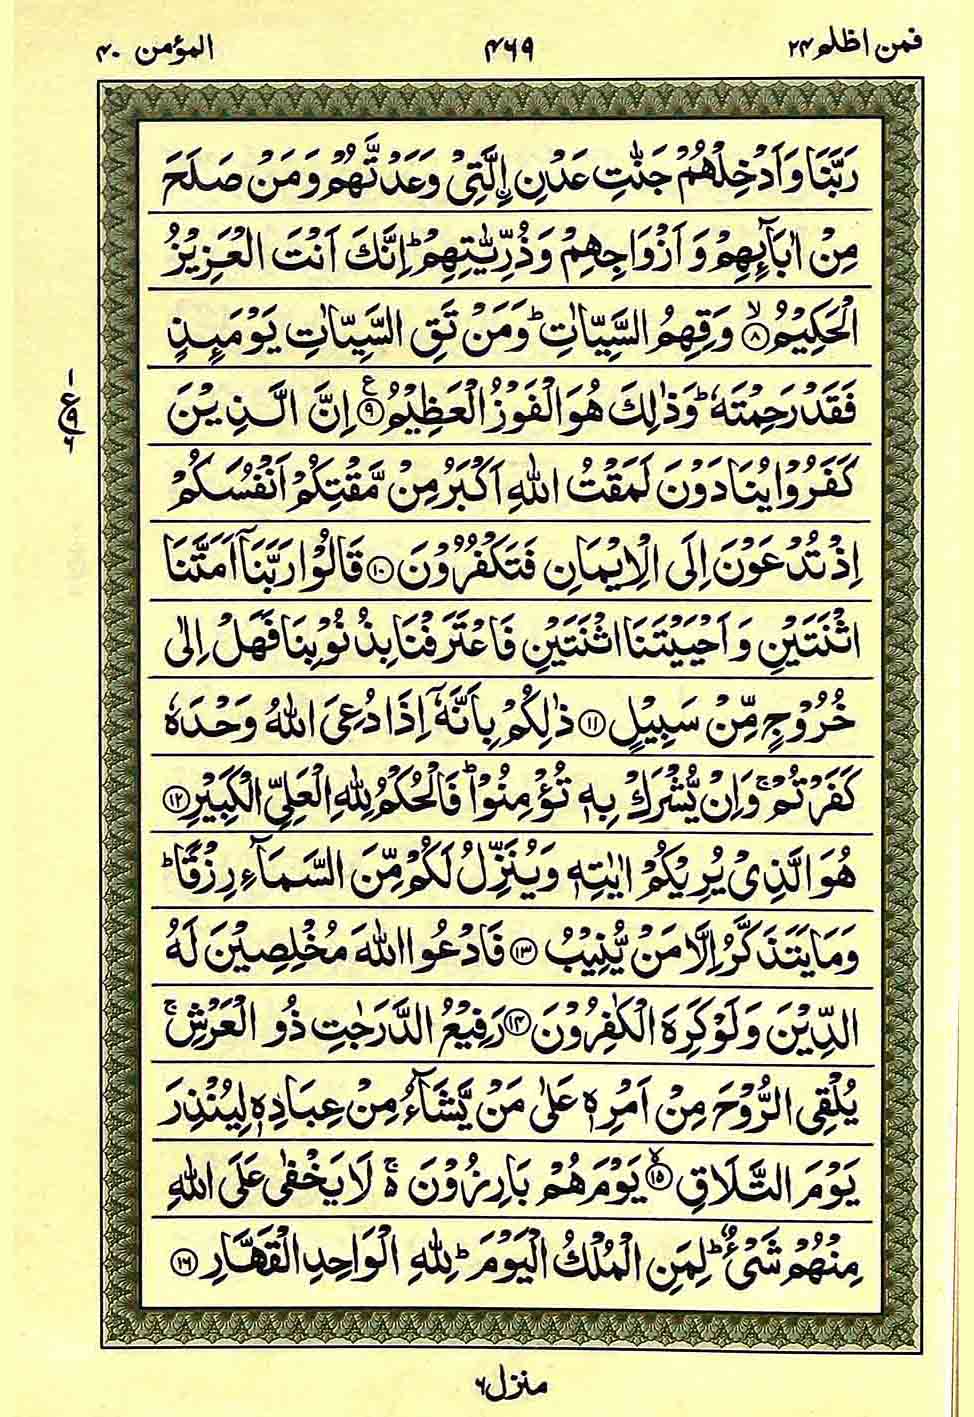 فمن اظلم ۲۴
۴۶۹
المؤمن ۴۰
رَبَّنَا وَاَدْخِلْهُمْ جَنّٰتِ عَدْنِ ِ۟الَّتِیْ وَعَدْتَّهُمْ وَمَنْ صَلَحَ
مِنْ اٰبَآىِٕهِمْ وَاَزْوَاجِهِمْ وَذُرِّیّٰتِهِمْ ؕ اِنَّكَ اَنْتَ الْعَزِیْزُ
الْحَكِیْمُ ۙ﴿۸﴾ وَقِهِمُ السَّیِّاٰتِ ؕ وَمَنْ تَقِ السَّیِّاٰتِ یَوْمَىِٕذٍ
فَقَدْ رَحِمْتَهٗ ؕ وَذٰلِكَ هُوَ الْفَوْزُ الْعَظِیْمُ ﴿۹﴾ ع اِنَّ الَّذِیْنَ
كَفَرُوْا یُنَادَوْنَ لَمَقْتُ اللّٰهِ اَكْبَرُ مِنْ مَّقْتِكُمْ اَنْفُسَكُمْ
اِذْ تُدْعَوْنَ اِلَی الْاِیْمَانِ فَتَكْفُرُوْنَ ﴿۱۰﴾ قَالُوْا رَبَّنَاۤ اَمَتَّنَا
اثْنَتَیْنِ وَاَحْیَیْتَنَا اثْنَتَیْنِ فَاعْتَرَفْنَا بِذُنُوْبِنَا فَهَلْ اِلٰی
خُرُوْجٍ مِّنْ سَبِیْلٍ ﴿۱۱﴾ ذٰلِكُمْ بِاَنَّهٗۤ اِذَا دُعِیَ اللّٰهُ وَحْدَهٗ
كَفَرْتُمْ ۚ وَاِنْ یُّشْرَكْ بِهٖ تُؤْمِنُوْا ؕ فَالْحُكْمُ لِلّٰهِ الْعَلِیِّ الْكَبِیْرِ ﴿۱۲﴾
هُوَ الَّذِیْ یُرِیْكُمْ اٰیٰتِهٖ وَیُنَزِّلُ لَكُمْ مِّنَ السَّمَآءِ رِزْقًا ؕ
وَمَا یَتَذَكَّرُ اِلَّا مَنْ یُّنِیْبُ ﴿۱۳﴾ فَادْعُوا اللّٰهَ مُخْلِصِیْنَ لَهُ
الدِّیْنَ وَلَوْ كَرِهَ الْكٰفِرُوْنَ ﴿۱۴﴾ رَفِیْعُ الدَّرَجٰتِ ذُو الْعَرْشِ ۚ
یُلْقِی الرُّوْحَ مِنْ اَمْرِهٖ عَلٰی مَنْ یَّشَآءُ مِنْ عِبَادِهٖ لِیُنْذِرَ
یَوْمَ التَّلَاقِ ۙ﴿۱۵﴾ یَوْمَ هُمْ بَارِزُوْنَ ۚ۬ لَا یَخْفٰی عَلَی اللّٰهِ
مِنْهُمْ شَیْءٌ ؕ لِمَنِ الْمُلْكُ الْیَوْمَ ؕ لِلّٰهِ الْوَاحِدِ الْقَهَّارِ ﴿۱۶﴾
۱
ع ۹
۶
منزل ۶